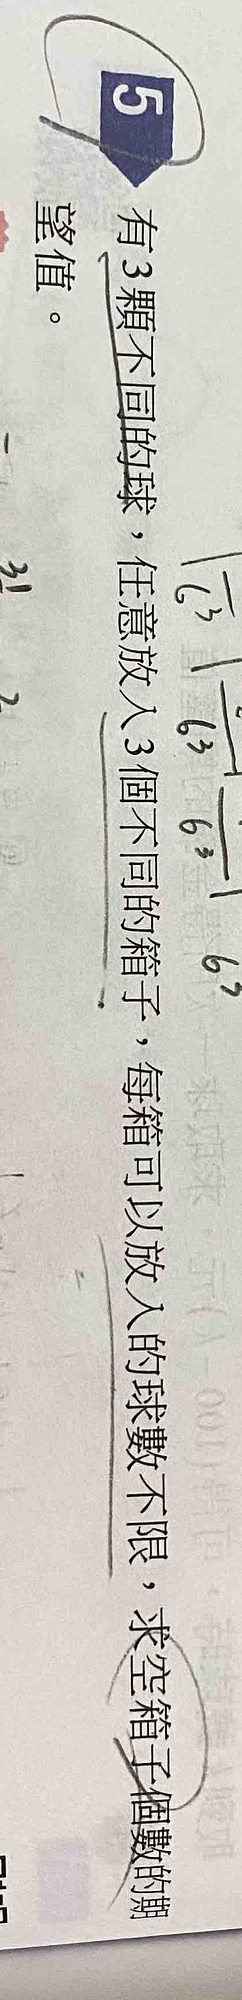 5
有3顆不同的球，任意放入3個不同的箱子，每箱可以放入的球數不限，求空箱子個數的期
望值。
6³ 6³ 6³ 6³
3! 2